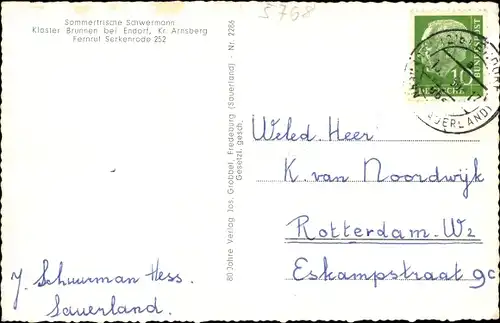 Sommerfrische Schwermann
Kloster Brunnen bei Endorf, Kr. Arnsberg
Fernruf Serkenrode 252
5768
10
DEUTSCHE
BUNDESPOST
80 Jahre Verlag Jos. Grobbel, Fredeburg (Sauerland) - Nr. 2286
Gesetzl. gesch.
Weled. Heer
K. van Noordwijk
Rotterdam-W2
Eskampstraat 9c
J. Schuurman Hess.
Sauerland.